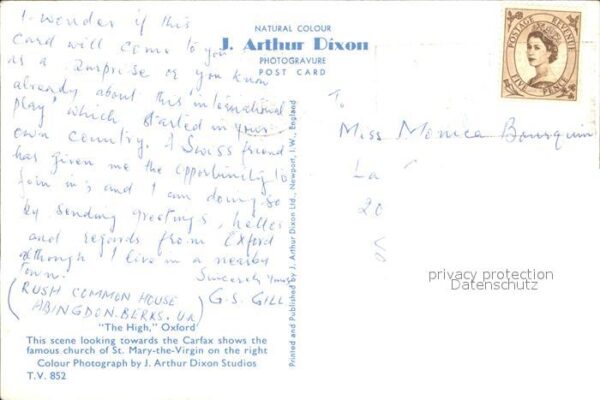 I wonder if this
card will come to you
as a surprise or you know
already about this 'international
play' which started in your
own country. A Swiss friend
has given me the opportunity to
join in's and I am doing so
by sending greetings, hellos
and regards from Oxford
although I live in a nearby
town.
Sincerely Yours
G.S. GILL
(RUSH COMMON HOUSE
ABINGDON. BERKS. UK)
"The High," Oxford
This scene looking towards the Carfax shows the
famous church of St. Mary-the-Virgin on the right
Colour Photograph by J. Arthur Dixon Studios
T.V. 852
NATURAL COLOUR
J. Arthur Dixon
PHOTOGRAVURE
POST CARD
Printed and Published by J. Arthur Dixon Ltd., Newport, I.W., England
POSTAGE REVENUE
FIVE PENCE
To
Miss Monica Bourquin
La
20
privacy protection
Datenschutz